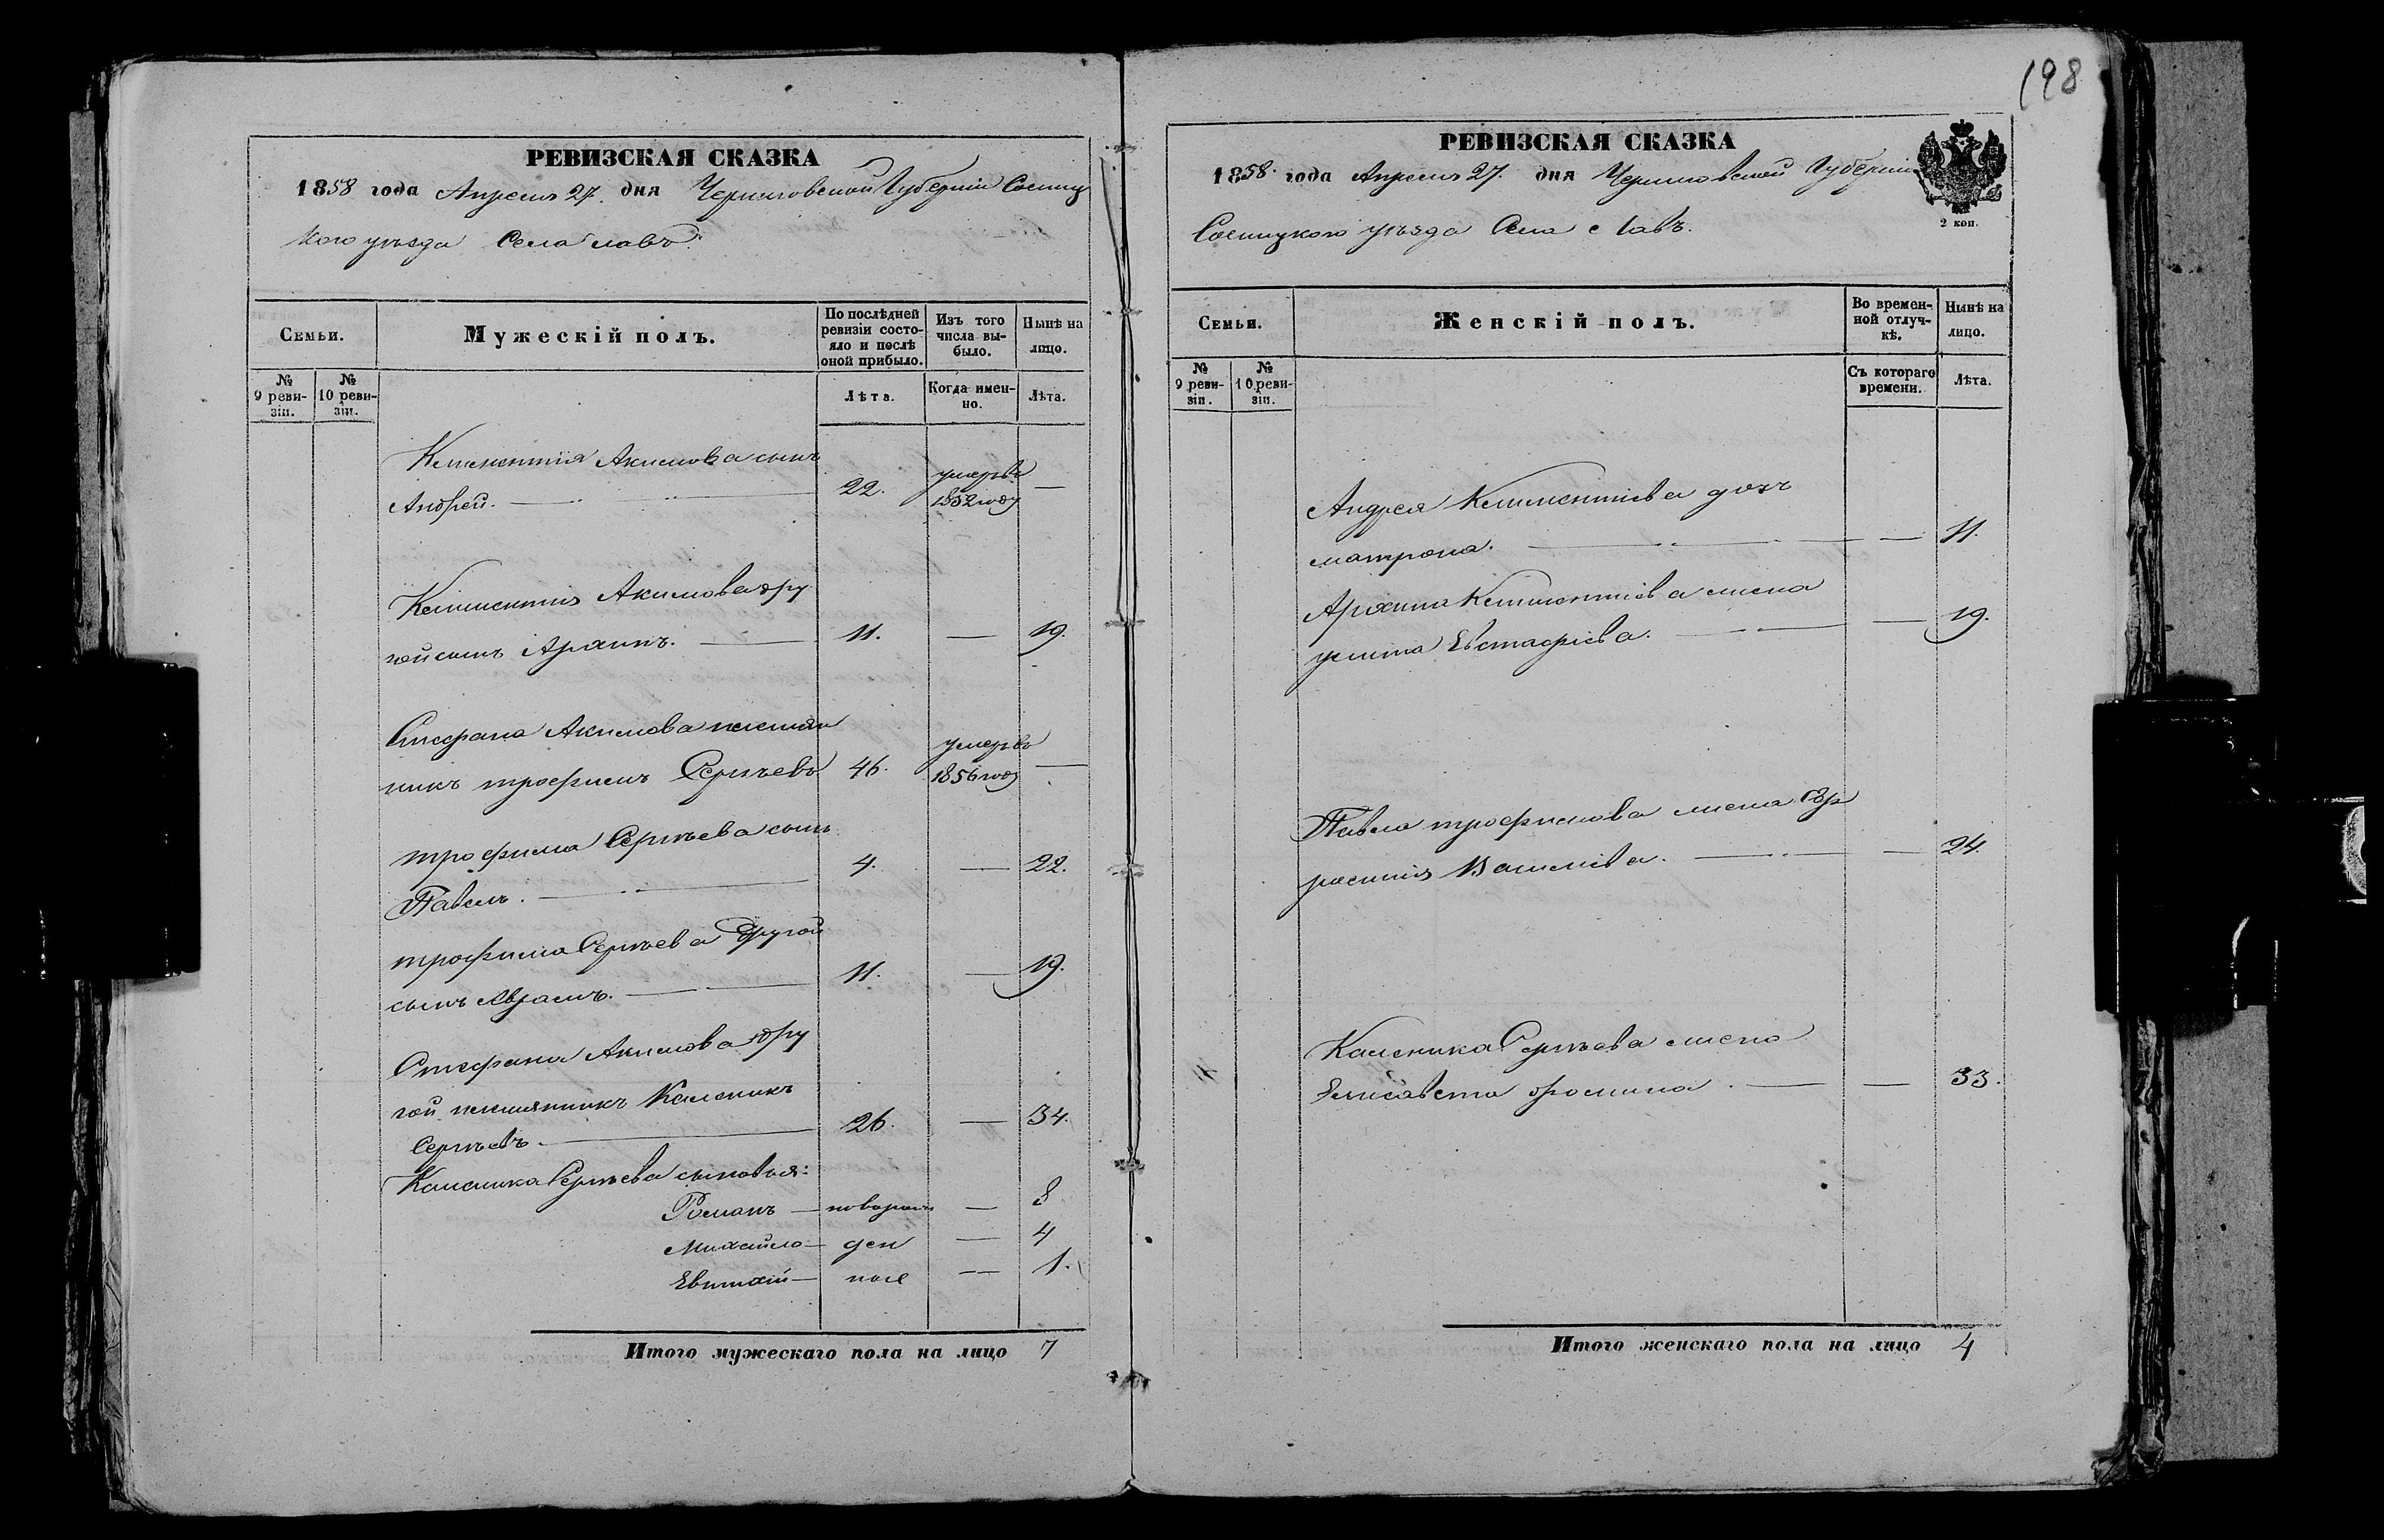 198
РЕВИЗСКАЯ СКАЗКА
1858 года Апреля 27. дня Черниговской Губерніи Сосниц
кого уѣзда Села Славъ
Семьи.
Мужескій полъ.
По послѣдней ревизіи состояло и послѣ оной прибыло.
Изъ того числа выбыло.
Нынѣ на лицо.
№ 9 ревизіи.
№ 10 ревизіи.
Лѣта.
Когда именно.
Лѣта.
Климентія Акимова сынъ
Андрей. 22. умеръ въ 1852 году —
Климентія Акимова дру
гой сынъ Архипъ. 11. — 19.
Стефана Акимова племян
никъ трофимъ Сергѣевъ 46. умеръ въ 1856 году —
трофима Сергѣева сынъ
Павелъ. 4. — 22.
трофима Сергѣева другой
сынъ Аврамъ. 11. — 19.
Стефана Акимова дру
гой племянникъ Каленикъ
Сергѣевъ. 26. — 34.
Каленика Сергѣева сыновья:
Романъ — новорож — 8
Михайло — ден — 4
Евтихій — ные — 1.
Итого мужескаго пола на лицо 7
РЕВИЗСКАЯ СКАЗКА
1858. года Апреля 27. дня Черниговской Губерніи
2 коп.
Сосницкого уѣзда Села Славъ.
Семьи.
Женскій полъ.
Во временной отлучкѣ.
Нынѣ на лицо.
№ 9 ревизіи.
№ 10 ревизіи.
Съ котораго времени.
Лѣта.
Андрея Климентіева дочь
матрона. — 11.
Архипа Климентіева жена
улита Евстафіева. — 19.
Павла трофимова жена Евф
росинія Василіева. — 24.
Каленика Сергѣева жена
Елисавета фомина. — 33.
Итого женскаго пола на лицо 4